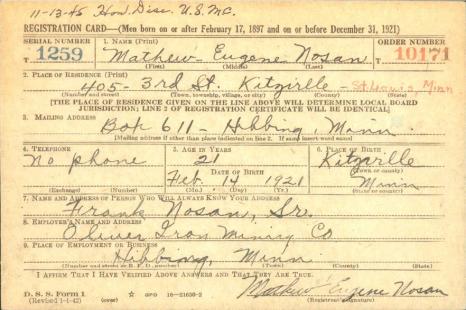 11-13-45 Hon. Disc. U.S.M.C.
REGISTRATION CARD—(Men born on or after February 17, 1897 and on or before December 31, 1921)
SERIAL NUMBER 1. NAME (Print) ORDER NUMBER
T 1259 Mathew Eugene Nosan T 10171
(First) (Middle) (Last)
2. PLACE OF RESIDENCE (Print)
405 - 3rd St. Kitzville - St. Louis, Minn
(Number and street) (Town, township, village, or city) (County) (State)
[THE PLACE OF RESIDENCE GIVEN ON THE LINE ABOVE WILL DETERMINE LOCAL BOARD
JURISDICTION; LINE 2 OF REGISTRATION CERTIFICATE WILL BE IDENTICAL]
3. MAILING ADDRESS
Box 611 - Hibbing Minn.
[Mailing address if other than place indicated on line 2. If same insert word same]
4. TELEPHONE 5. AGE IN YEARS 6. PLACE OF BIRTH
no phone 21 Kitzville
DATE OF BIRTH (Town or county)
Feb. 14 1921 Minn
(Exchange) (Number) (Mo.) (Day) (Yr.) (State or country)
7. NAME AND ADDRESS OF PERSON WHO WILL ALWAYS KNOW YOUR ADDRESS
Frank Nosan, Sr.
8. EMPLOYER'S NAME AND ADDRESS
Oliver Iron Mining Co
9. PLACE OF EMPLOYMENT OR BUSINESS
Hibbing, Minn.
(Number and street or R. F. D. number) (Town) (County) (State)
I AFFIRM THAT I HAVE VERIFIED ABOVE ANSWERS AND THAT THEY ARE TRUE.
D. S. S. Form 1 Mathew Eugene Nosan
(Revised 1-1-42) (over) GPO 16—21630-2 (Registrant's signature)